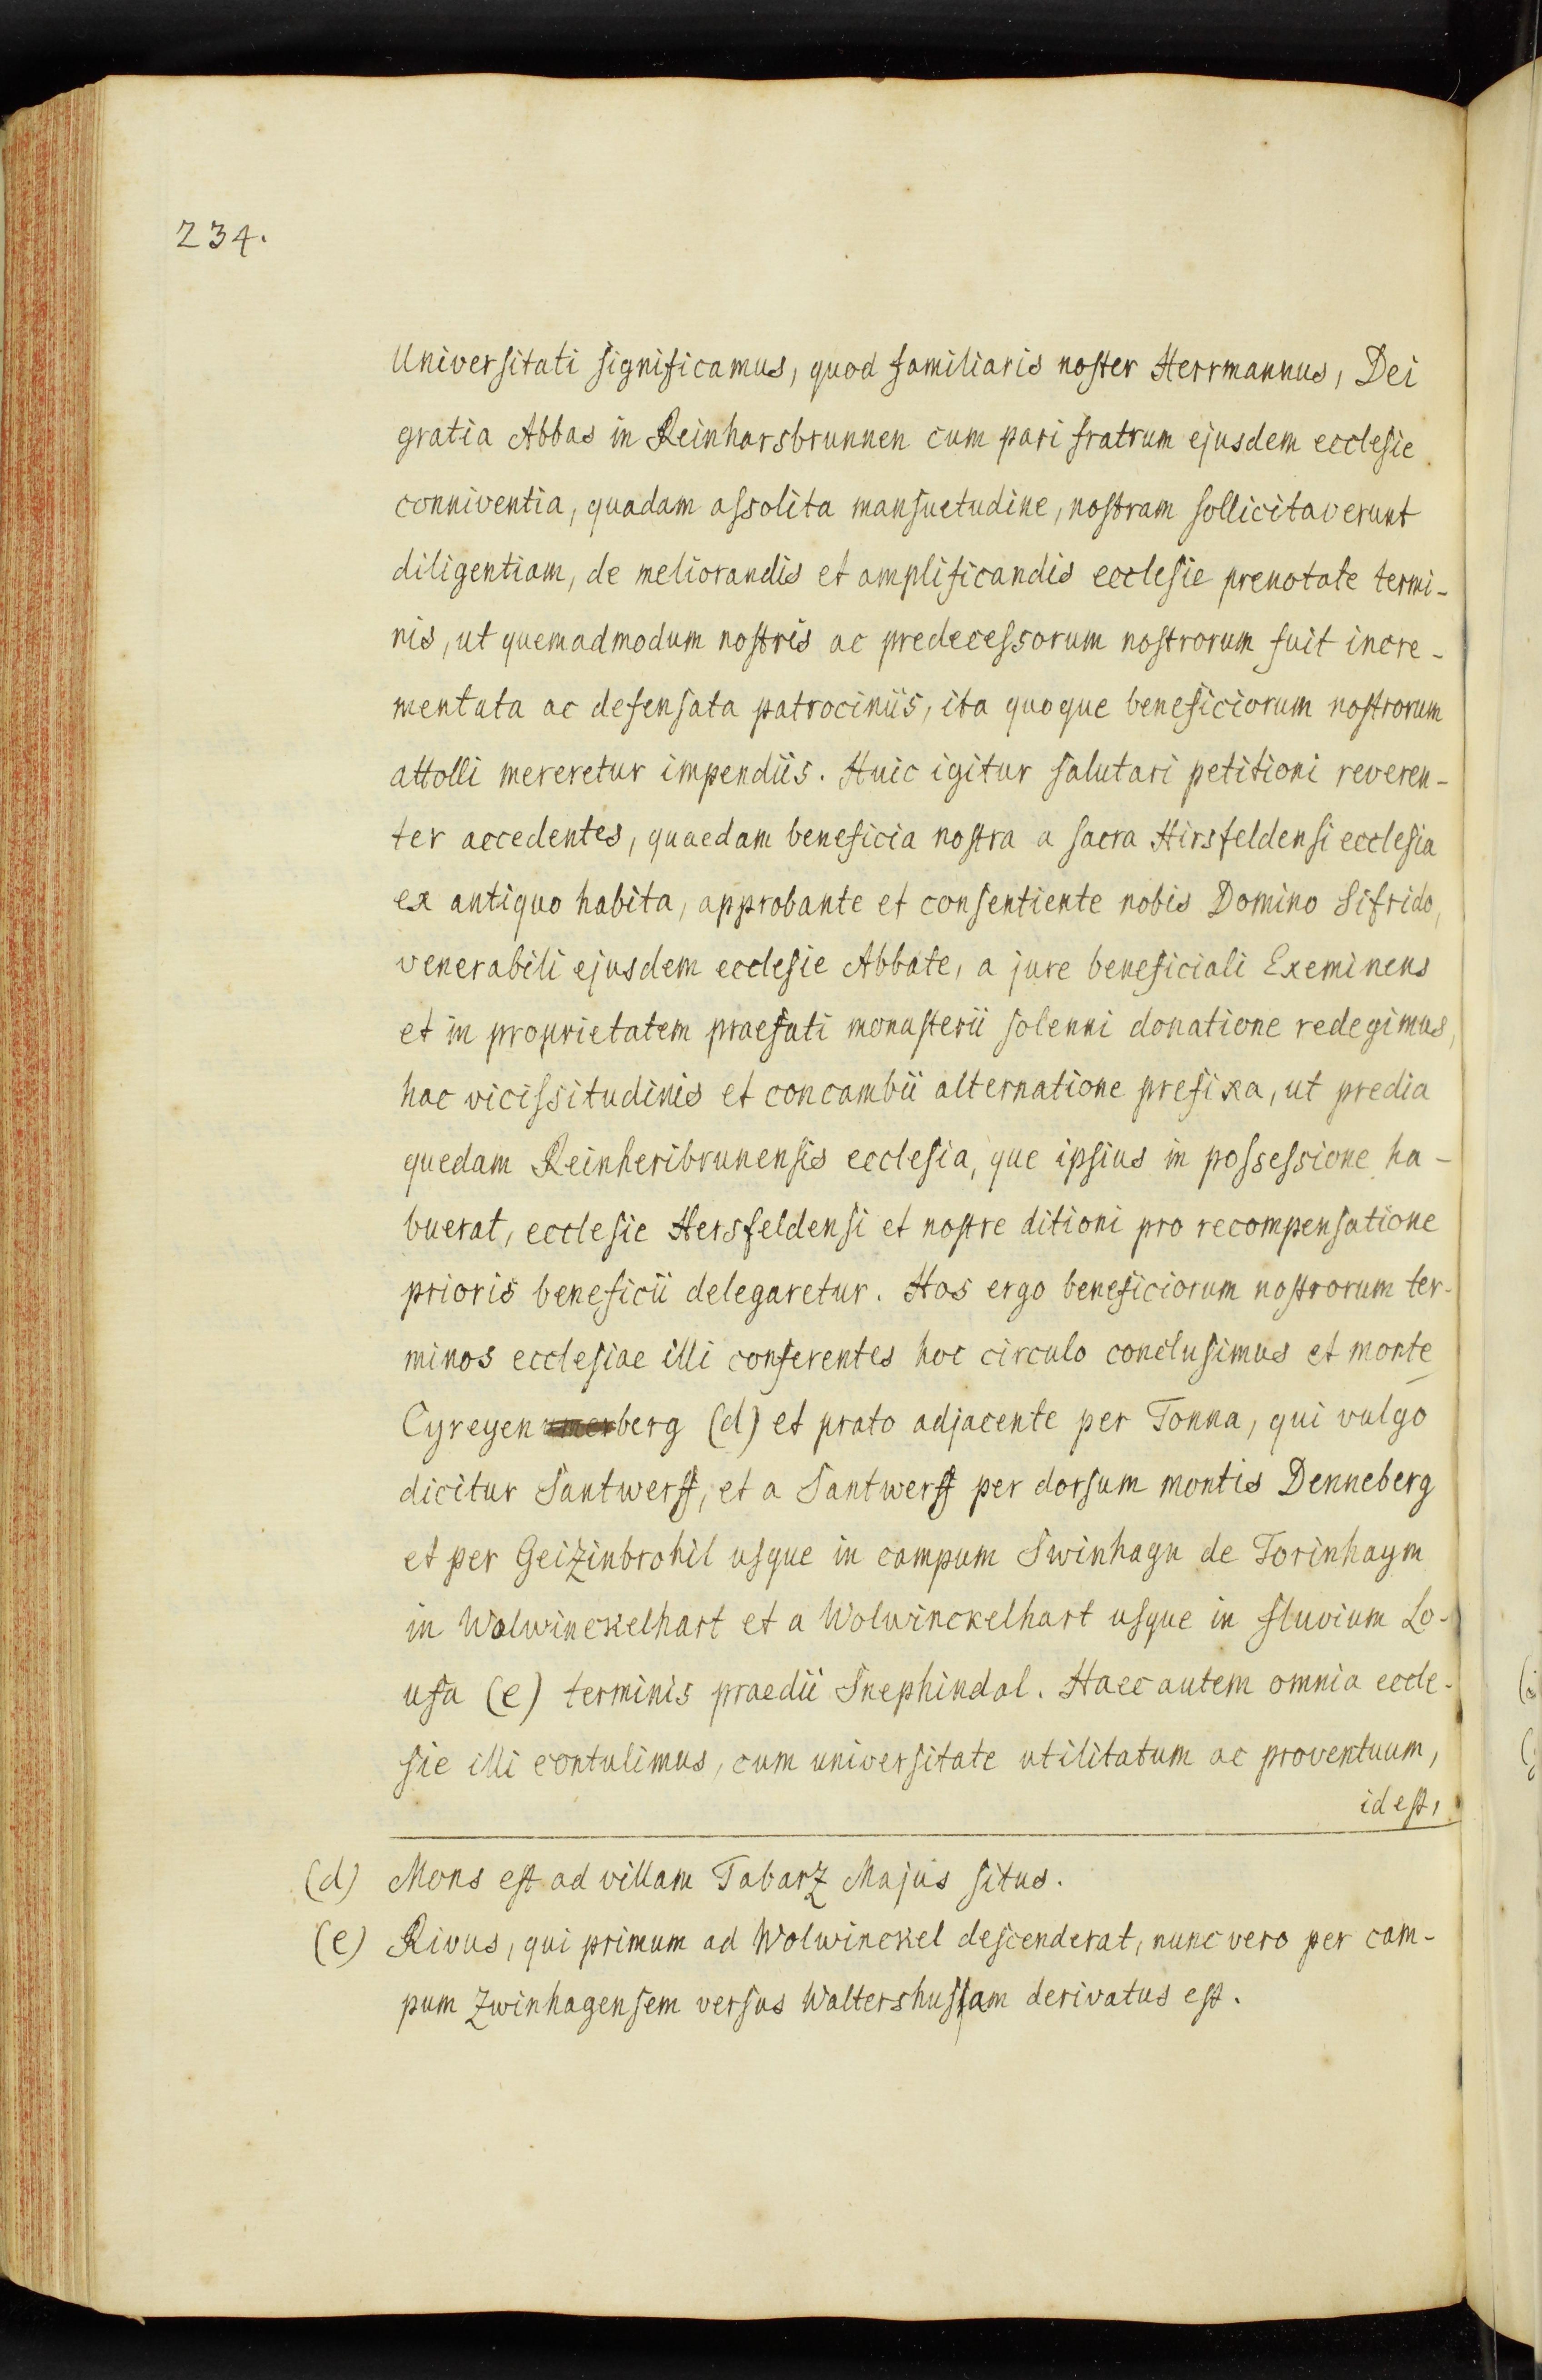 234.
Universitati significamus, quod familiaris noster Herrmannus, Dei
gratia Abbas in Reinharsbrunnen cum pari fratrum ejusdem ecclesie
conniventia, quadam assolita mansuetudine, nostram sollicitaverunt
diligentiam, de meliorandis et amplificandis ecclesie prenotate termi-
nis, ut quemadmodum nostris ac predecessorum nostrorum fuit incre-
mentata ac defensata patrociniis, ita quoque beneficiorum nostrorum
attolli mereretur impendiis. Huic igitur salutari petitioni reveren-
ter accedentes, quaedam beneficia nostra a sacra Hirsfeldensi ecclesia
ex antiquo habita, approbante et consentiente nobis Domino Sifrido,
venerabili ejusdem ecclesie Abbate, a jure beneficiali Exeminens
et in proprietatem praefati monasterii solenni donatione redegimus,
hac vicissitudinis et concambii alternatione prefixa, ut predia
quedam Reinheribrunensis ecclesia, que ipsius in possessione ha-
buerat, ecclesie Hersfeldensi et nostre ditioni pro recompensatione
prioris beneficii delegaretur. Hos ergo beneficiorum nostrorum ter-
minos ecclesiae illi conferentes hoc circulo conclusimus et monte
Cyreyenberg (d) et prato adjacente per Tonna, qui vulgo
dicitur Santwerff, et a Santwerff per dorsum montis Denneberg
et per Geizinbrohil usque in campum Swinhagn de Torinhaym
in Wolwinckelhart et a Wolwinckelhart usque in fluvium Lo-
usa (e) terminis praedii Snephindal. Haec autem omnia eccle-
sie illi contulimus, cum universitate utilitatum ac proventuum,
id est,
(d) Mons est ad villam Tabarz Majus situs.
(e) Rivus, qui primum ad Wolwinckel descenderat, nunc vero per cam-
pum Zwinhagensem versus Waltershussam derivatus est.